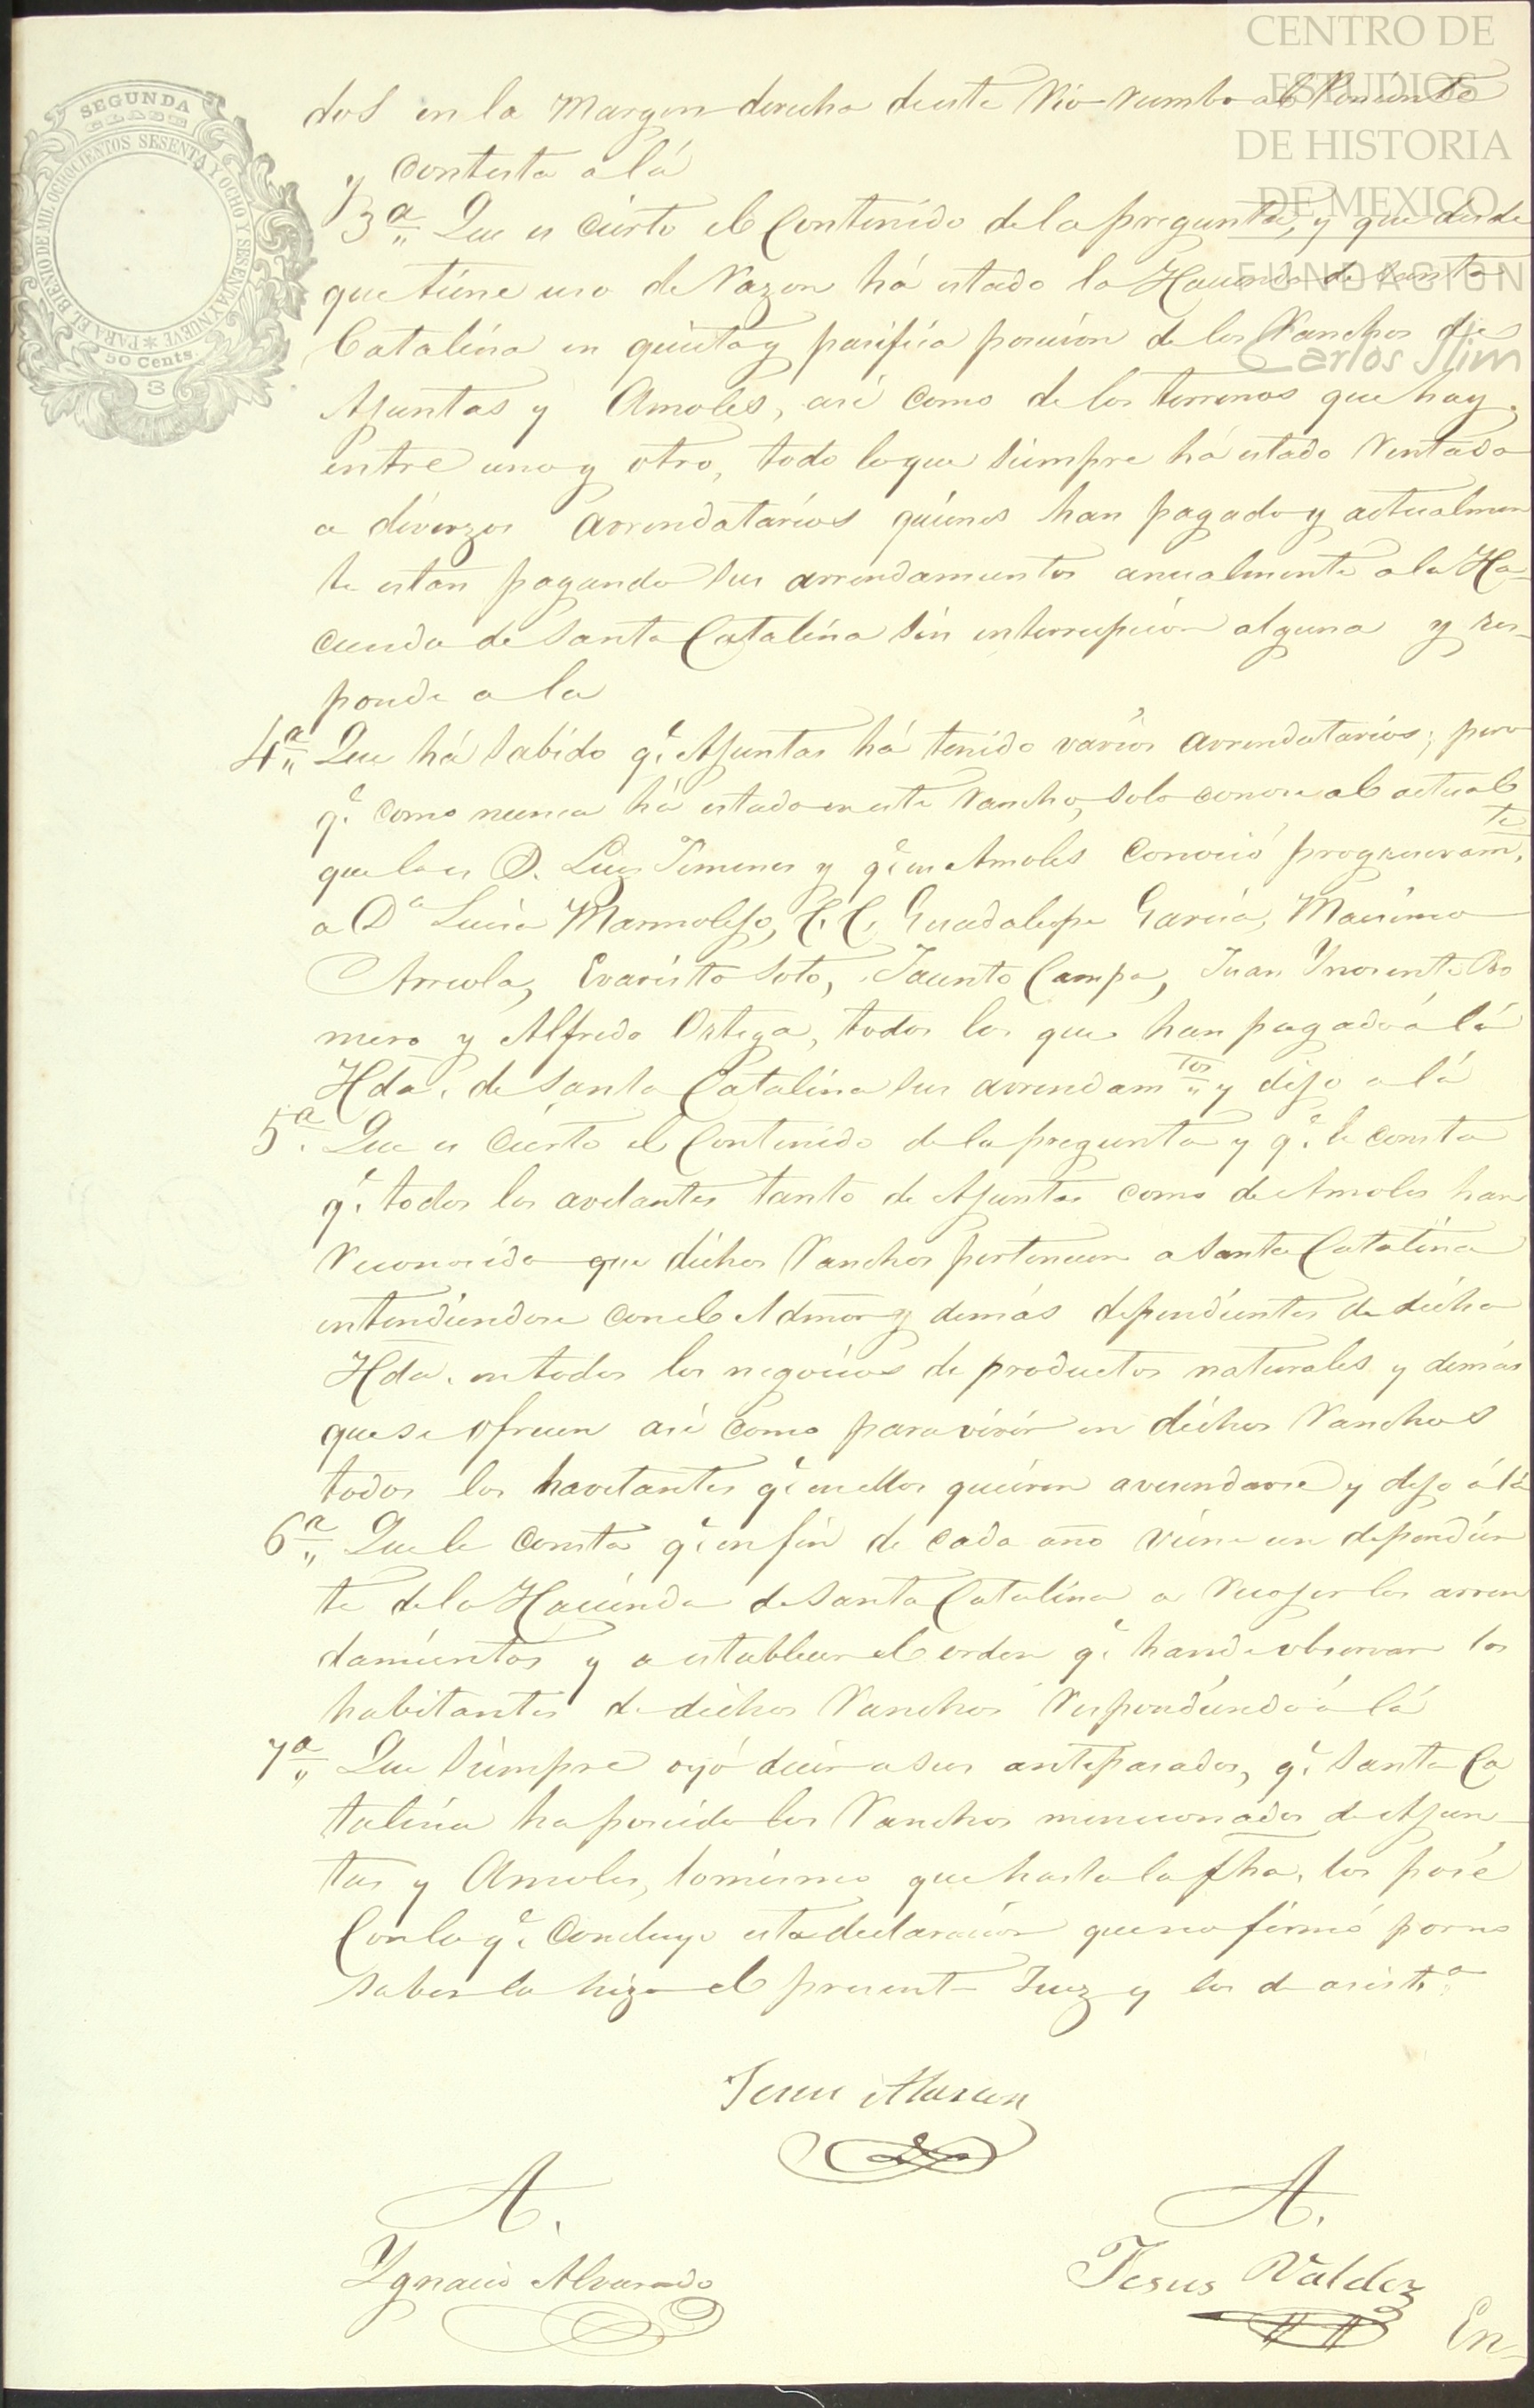 CENTRO DE
ESTUDIOS
DE HISTORIA
DE MEXICO
FUNDACION
Carlos Slim
SEGUNDA
CLASE
PARA EL BIENIO DE MIL OCHOCIENTOS SESENTA Y OCHO Y SESENTA Y NUEVE
50 Cents.
3
dos en la Margen derecha de este Rio rumbo al Poniente
y contesta a lá
3ª Que es cierto el Contenido de la pregunta, y que desde
que tiene uso de Razon há estado la Hacienda de Santa
Catalina en quieta y pacifica posecion de los Ranchos de
Ajuntas y Amoles, asi como de los terrenos que hay
entre uno y otro, todo loque siempre há estado rentado
a diverzos arrendatarios quienes han pagado y actualmen
te estan pagando sus arrendamientos anualmente a la Ha-
cienda de Santa Catalina sin interrupcion alguna y res-
ponde a la
4ª Que há sabido qe. Ajuntas há tenido varios arrendatarios; pero
qe. como nunca há estado en este Rancho, solo conose al actual
que lo es D. Luis Jimenes y qe. en Amoles conoció progresivamte.
a Da Lucia Marmolejo, C.C. Guadalupe Garcia, Macsimo
Arreola, Evaristo Soto, Jacinto Campa, Juan Ynosente Ro
mero y Alfredo Ortega, todos los que han pagado á lá
Hda. de Santa Catalina sus arrendamtos y dijo a lá
5ª. Que es cierto el Contenido de la pregunta y qe. le consta
qe. todos los avitantes tanto de Ajuntas como de Amoles han
reconosido que dichos Ranchos pertenecen a Santa Catalina
entendiendose con el Admor y demás dependientes de dicha
Hda. en todos los negocios de productos naturales y demas
que se ofrecen asi como para vivir en dichos Ranchos
todos los havitantes qe. en ellos quieren avecindarse y dijo á lá
6ª Que le consta qe. en fin de cada año viene un dependien
te de la Hacienda de Santa Catalina a recojer los arren
damientos y a establecer el orden qe. han de observar los
habitantes de dichos Ranchos respondiendo á lá
7ª Que siempre oyó decir a sus antepasados, qe. Santa Ca
talina ha poseido los Ranchos mencionados de Ajun-
tas y Amoles, lo mismo que hasta la fha. los posé
Con lo qe. concluyo esta declaracion que no firmó por no
saber lo hizo el presente Juez y los de asista.
A.
Ygnacio Alvarado
A.
Jesus Valdez
En-